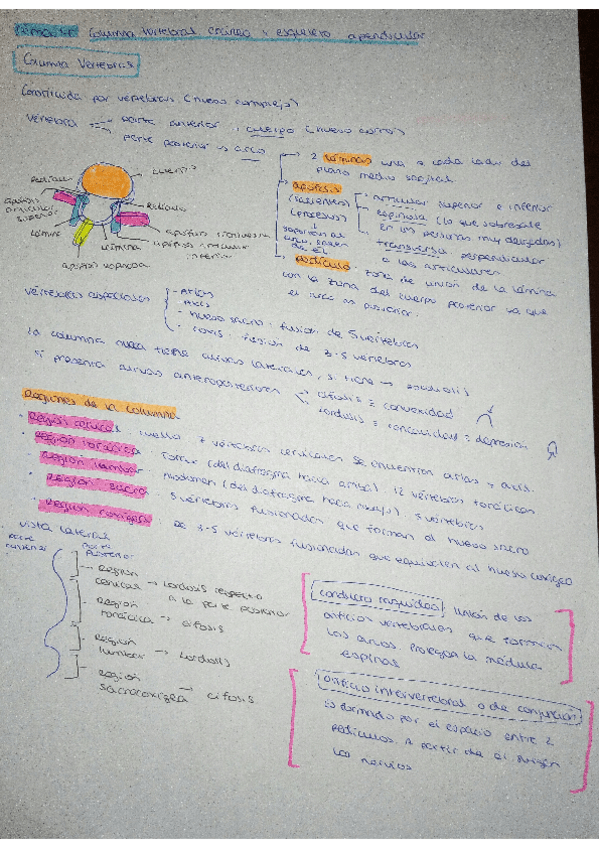 Columna vertebral cráneo y esqueleto apendicular
Columna Vertebral
Constituida por vertebras (hueso complejo)
Vertebra parte anterior cuerpo (hueso corto)
parte posterior → arco
2 láminas una a cada lado del
plano medio sagital.
cuerpo
pedículo
apófisis
articular
superior
apófisis transversa
lámina
lámina
apófisis articular
inferior
apófisis espinosa
apófisis
(salientes)
(procesos)
articular superior e inferior
espinosa (lo que sobresale
en las personas muy delgadas)
transversa perpendicular
a las articulares
pedículo zona de unión de la lámina
con la zona del cuerpo posterior ya que
el arco es posterior.
vértebras especiales
- Atlas
- Axis
- hueso sacro: fusión de 5 vértebras
- coxis: fusión de 3-5 vértebras
la columna nunca tiene curvas laterales, si tiene → escoliosis
si presenta curvas anteroposteriores → cifosis = convexidad
lordosis = concavidad = depresión
Regiones de la columna
· Región cervical cuello 7 vértebras cervicales se encuentran atlas y axis.
· Región torácica torax (del diafragma hacia arriba) 12 vértebras torácicas
· Región lumbar abdomen (del diafragma hacia abajo) 5 vértebras
· Región sacra 5 vértebras fusionadas que forman el hueso sacro
· Región coxígea de 3-5 vértebras fusionadas que equivalen al hueso coxígeo
· vista lateral
parte
anterior
parte
posterior
- Región
cervical → lordosis respecto
a la parte posterior
- Región
torácica → cifosis
- Región
lumbar → lordosis
- Región
sacrocoxígea → cifosis
conducto raquídeo: unión de los
orificios vertebrales que forman
los arcos. Protegen la médula
espinas
orificio intervertebral o de conjunción
es formado por el espacio entre 2
pedículos. A partir de el surgen
los nervios